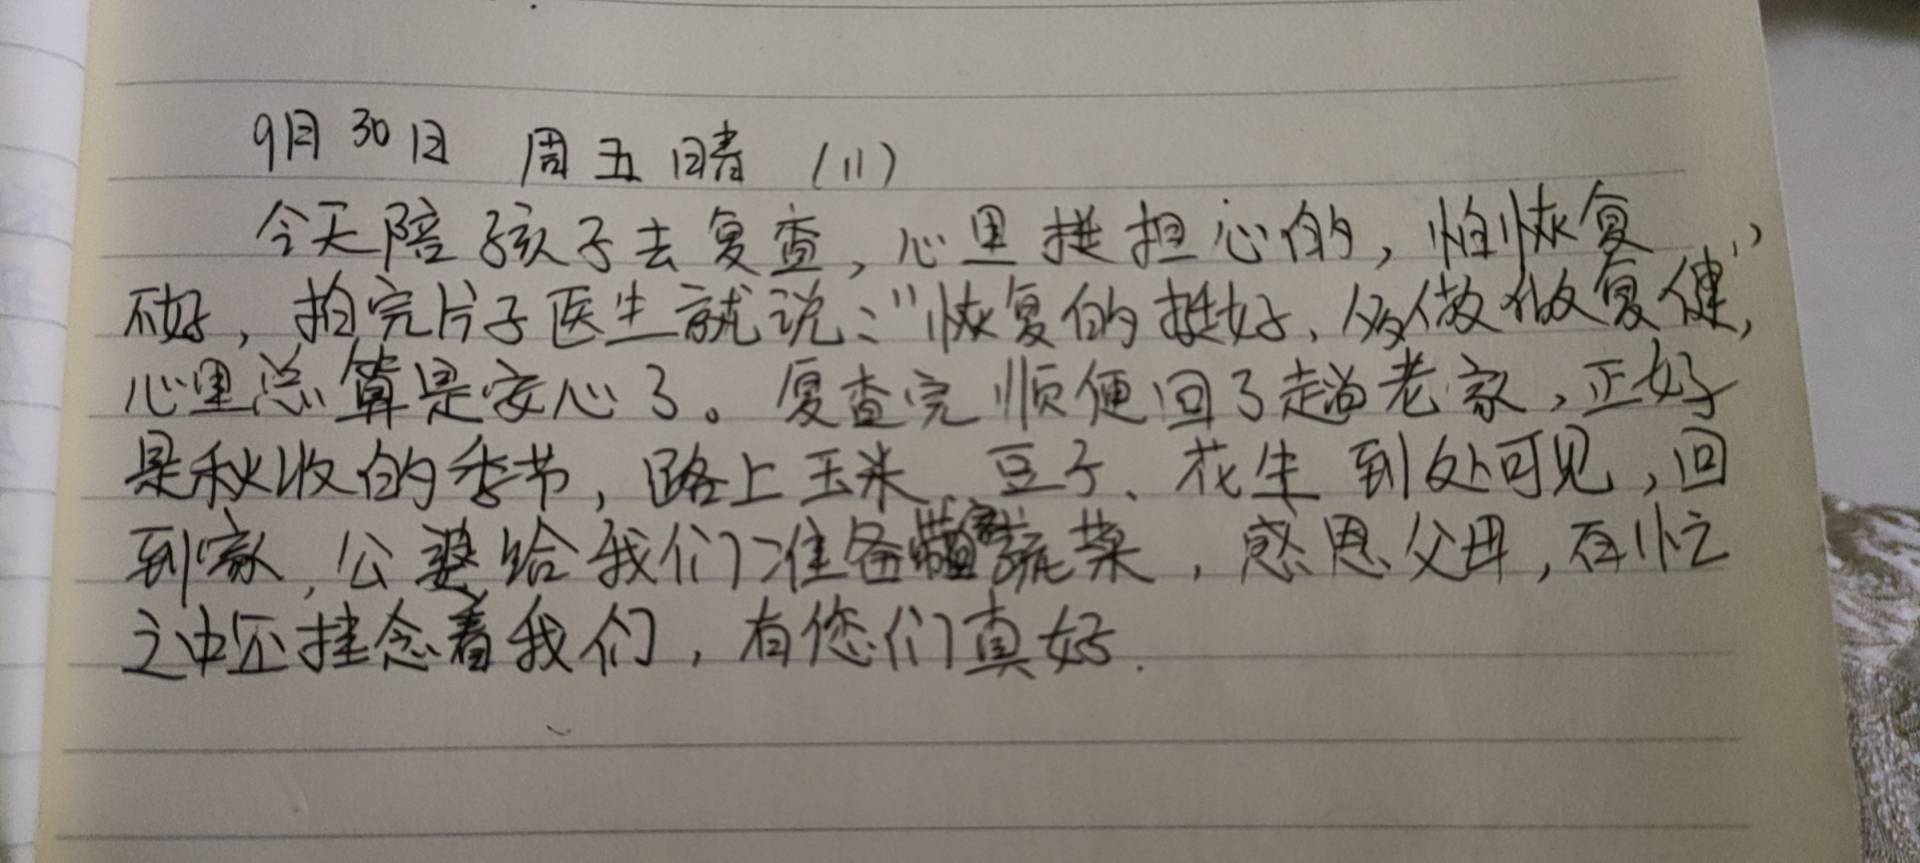 9月30日 周五 晴 (11)
今天陪孩子去复查,心里挺担心的,怕恢复
不好,拍完片子医生就说:"恢复的挺好、多做做复健",
心里总算是安心了。复查完顺便回了趟老家,正好
是秋收的季节,路上玉米、豆子、花生到处可见,回
到家,公婆给我们准备蔬菜,感恩父母,百忙
之中还挂念着我们,有您们真好.